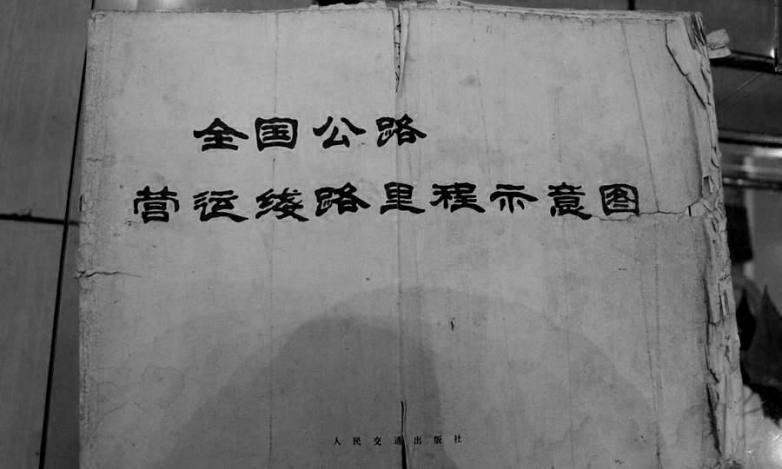 全国公路
营运线路里程示意图
人民交通出版社